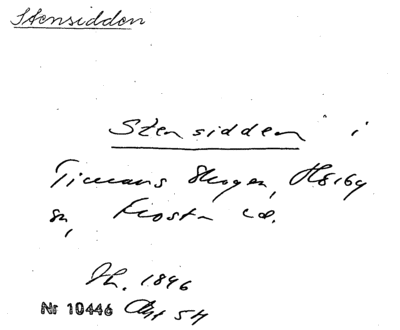 Stensidden
Stensidden i
Timans Skogen, Höiby
sn, Frosta hd.
Jh. 1846
Nr 10446 Akt 54